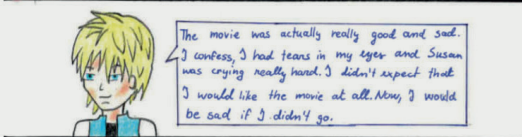 The movie was actually really good and sad.
I confess, I had tears in my eyes and Susan
was crying really hard. I didn't expect that
I would like the movie at all. Now, I would
be sad if I didn't go.